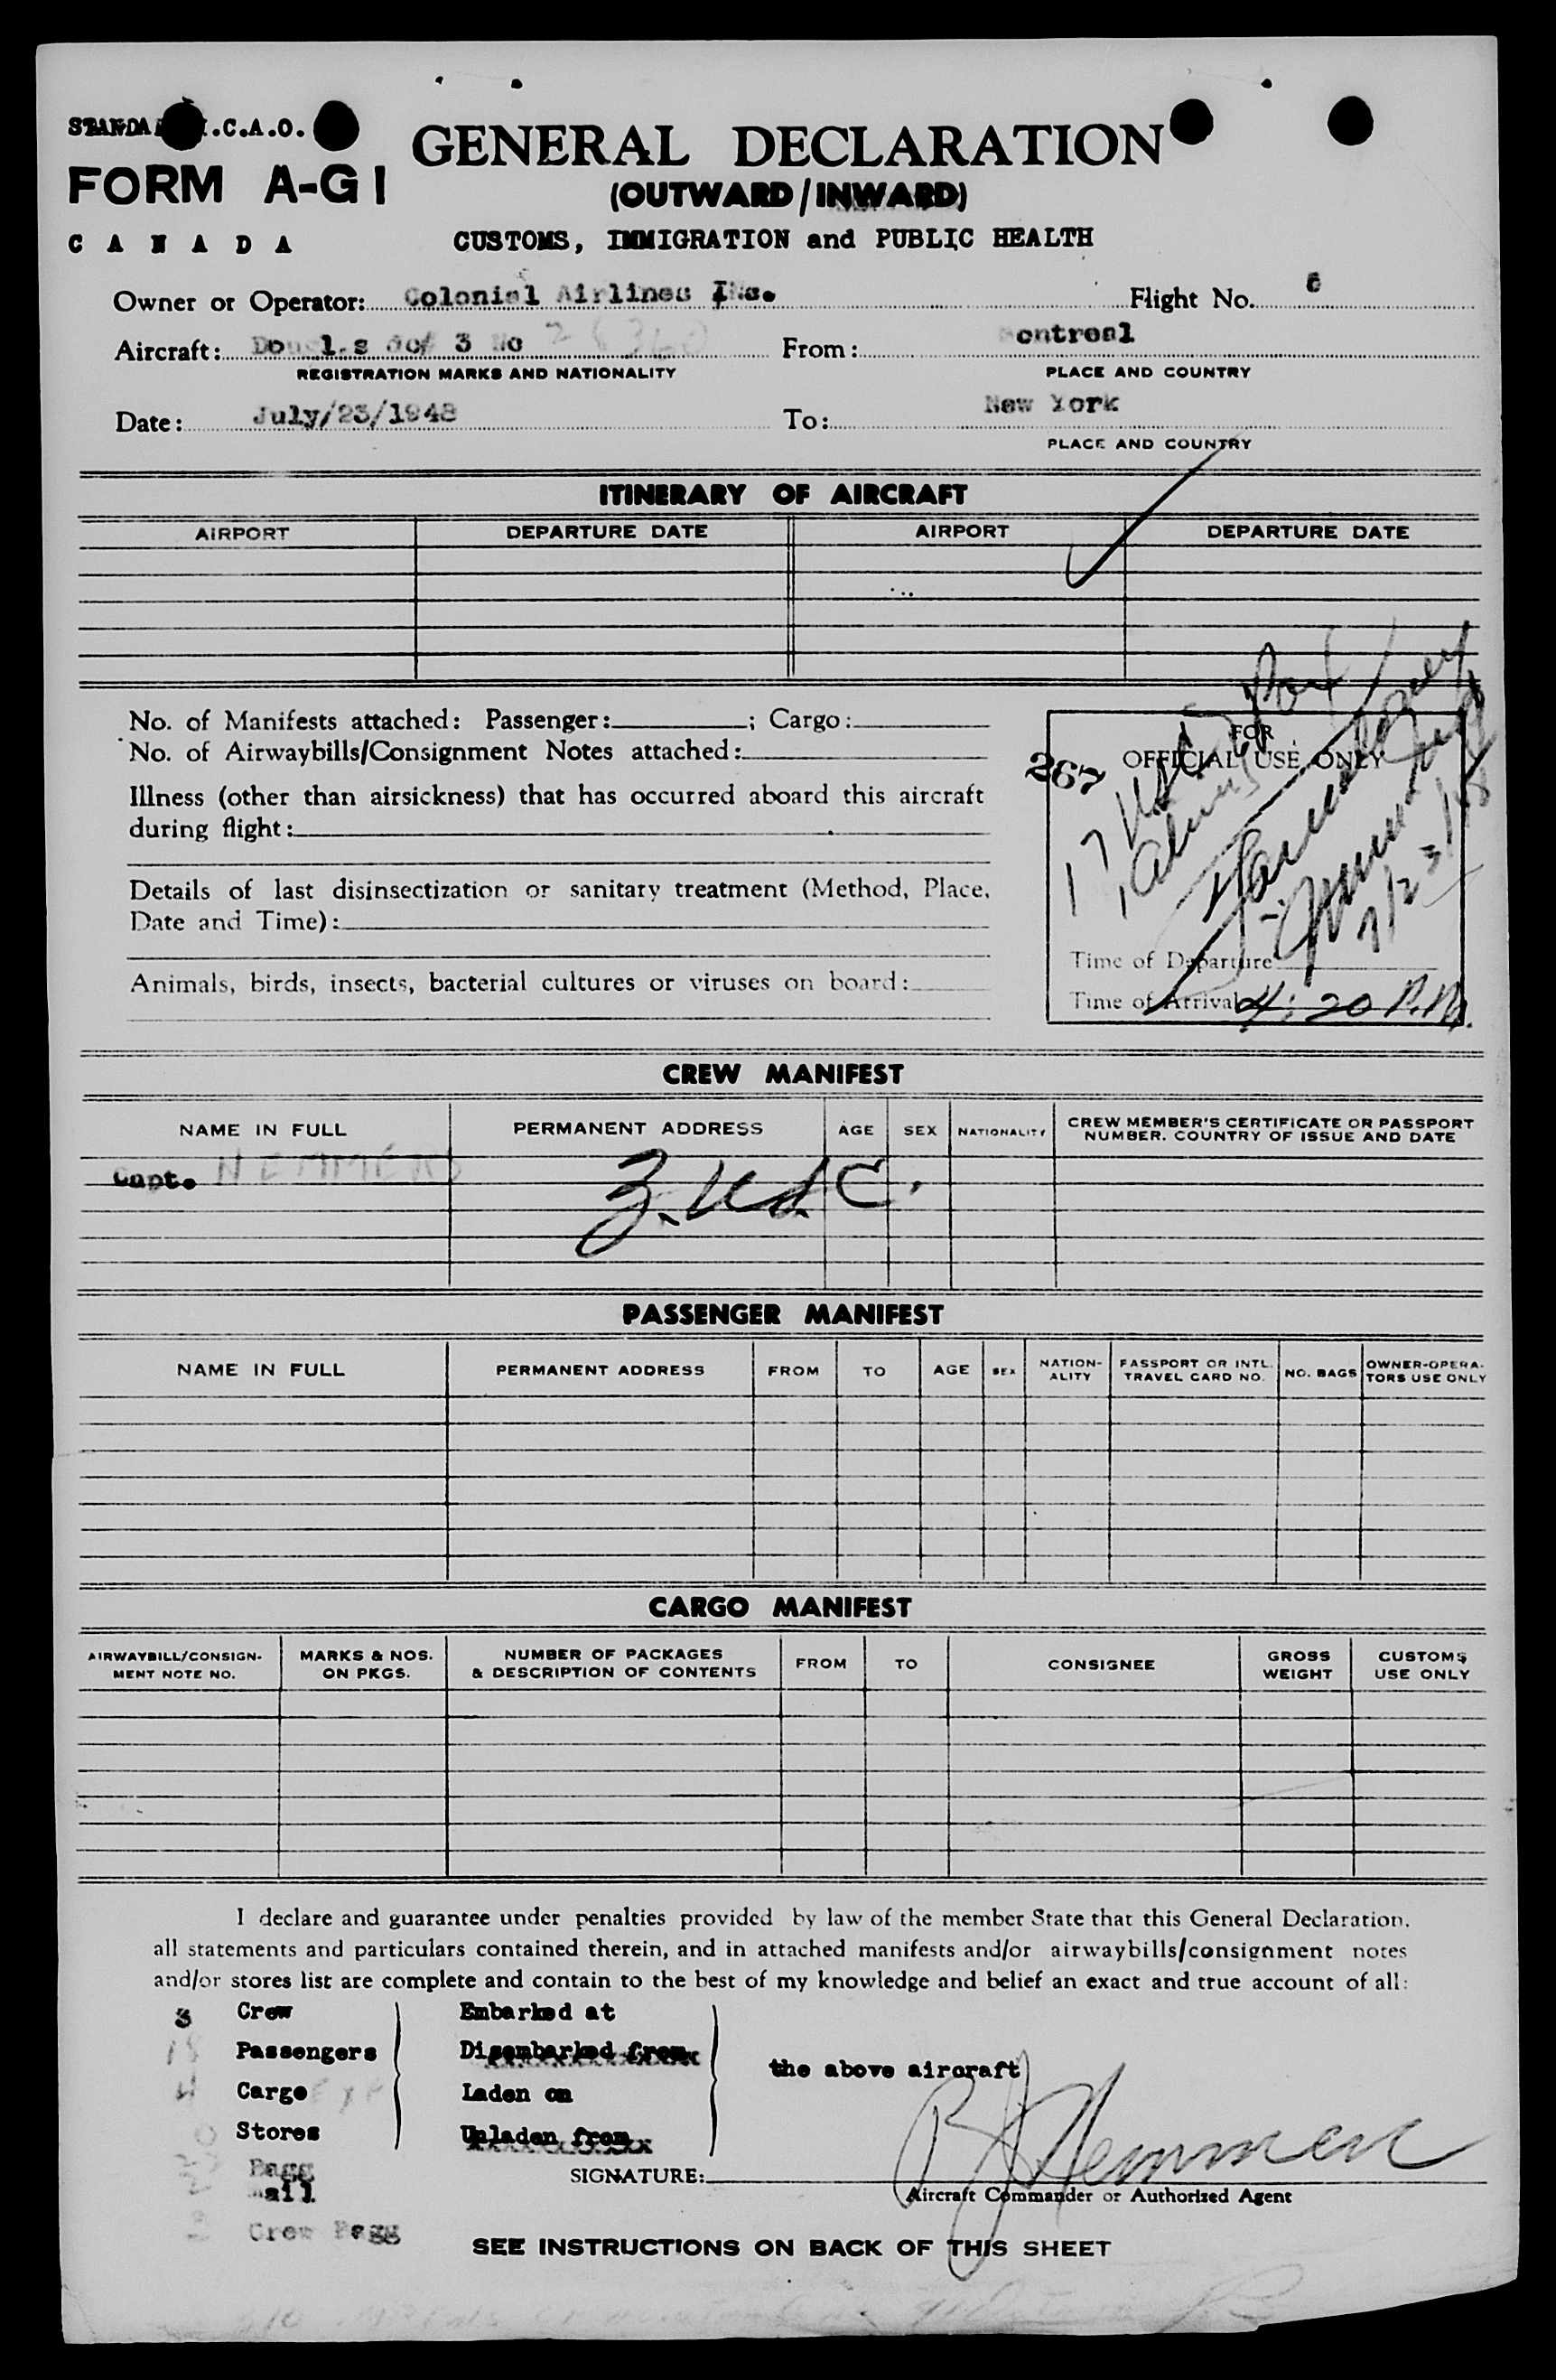 I.C.A.O.
FORM A-G1
CANADA
GENERAL DECLARATION
(OUTWARD/INWARD)
CUSTOMS, IMMIGRATION and PUBLIC HEALTH
Owner or Operator: Colonial Airlines Inc. Flight No. 6
Aircraft: Douglas 3 No From: Montreal
REGISTRATION MARKS AND NATIONALITY PLACE AND COUNTRY
Date: July/23/1948 To: New York
PLACE AND COUNTRY
ITINERARY OF AIRCRAFT
AIRPORT DEPARTURE DATE AIRPORT DEPARTURE DATE
No. of Manifests attached: Passenger: ; Cargo:
No. of Airwaybills/Consignment Notes attached:
Illness (other than airsickness) that has occurred aboard this aircraft
during flight:
Details of last disinsectization or sanitary treatment (Method, Place,
Date and Time):
Animals, birds, insects, bacterial cultures or viruses on board:
267
FOR
OFFICIAL USE ONLY
17 USC
7/23/48
Time of Departure
Time of Arrival 4:20 P.M.
CREW MANIFEST
NAME IN FULL PERMANENT ADDRESS AGE SEX NATIONALITY CREW MEMBER'S CERTIFICATE OR PASSPORT NUMBER. COUNTRY OF ISSUE AND DATE
Capt. NEMMERS
3 USC.
PASSENGER MANIFEST
NAME IN FULL PERMANENT ADDRESS FROM TO AGE SEX NATION-ALITY PASSPORT OR INTL. TRAVEL CARD NO. NO. BAGS OWNER-OPERA-TORS USE ONLY
CARGO MANIFEST
AIRWAYBILL/CONSIGN-MENT NOTE NO. MARKS & NOS. ON PKGS. NUMBER OF PACKAGES & DESCRIPTION OF CONTENTS FROM TO CONSIGNEE GROSS WEIGHT CUSTOMS USE ONLY
I declare and guarantee under penalties provided by law of the member State that this General Declaration,
all statements and particulars contained therein, and in attached manifests and/or airwaybills/consignment notes
and/or stores list are complete and contain to the best of my knowledge and belief an exact and true account of all:
3 Crew Embarked at
Passengers Disembarked from
the above aircraft
Cargo Laden on
Stores Unladen from
Bagg
Mail
Crew Bagg
SIGNATURE:
Aircraft Commander or Authorized Agent
SEE INSTRUCTIONS ON BACK OF THIS SHEET